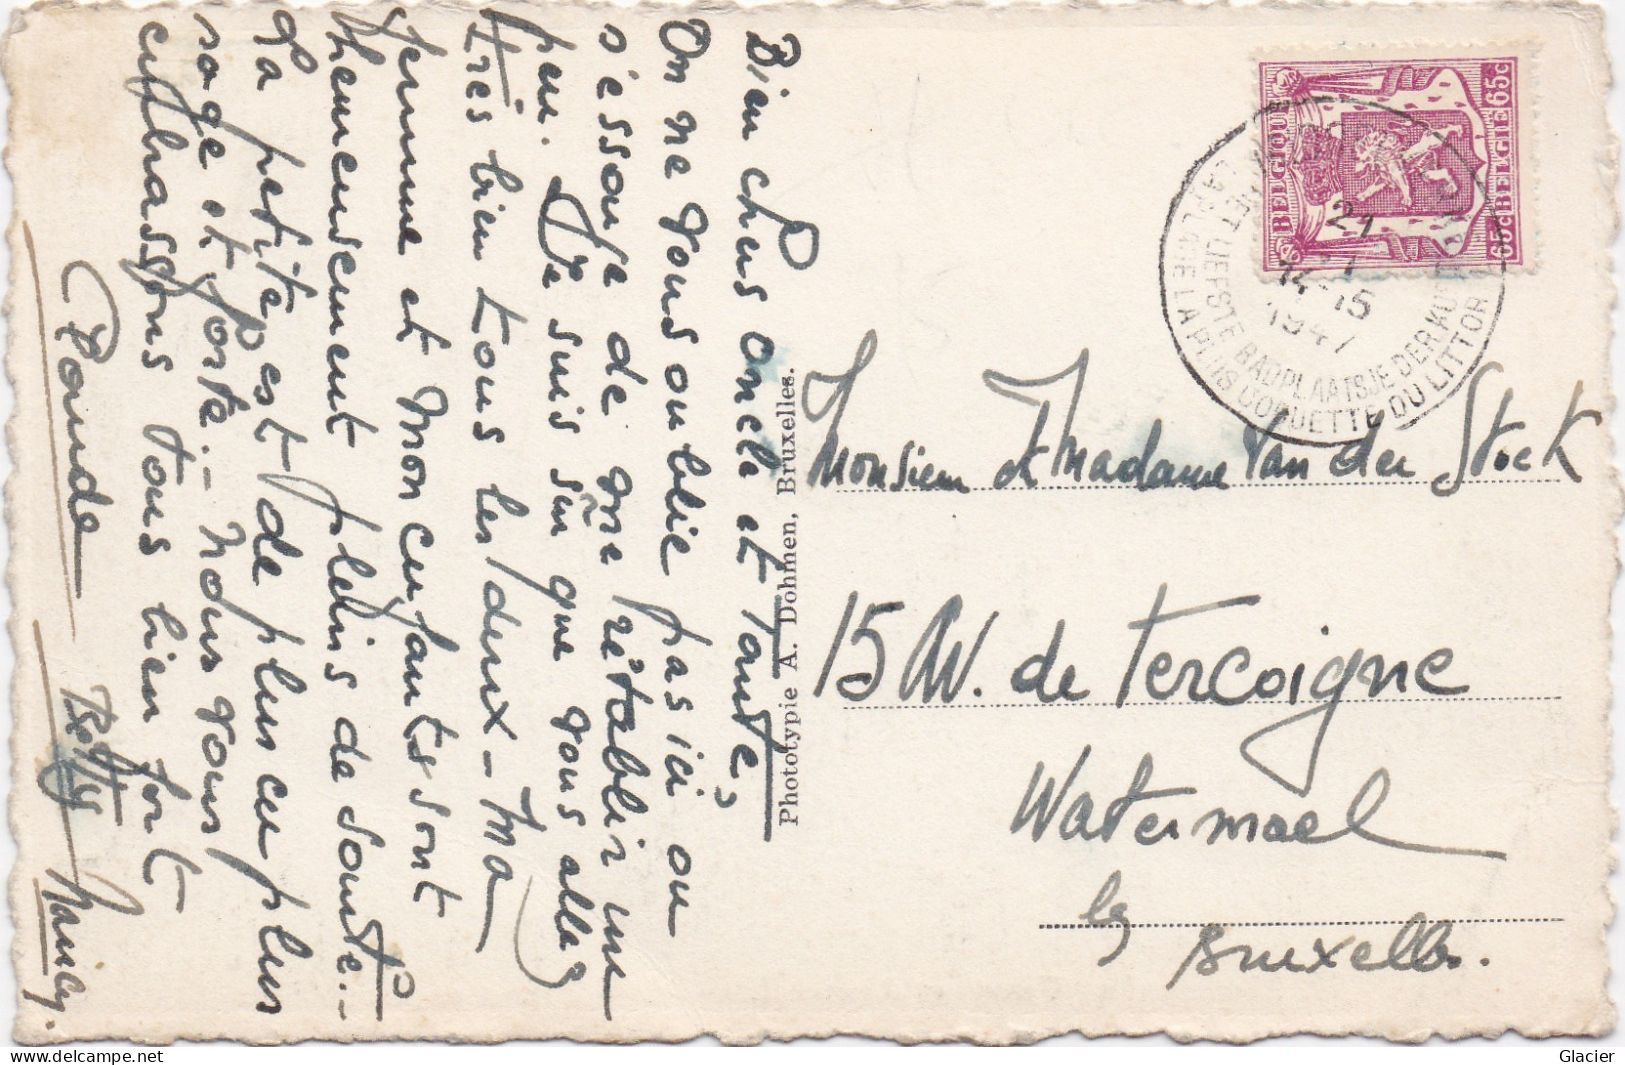 Bien chers oncle et Tante,
On ne vous oublie pas ici ou
s'essoufe de me rétablir un
peu. Je suis sûr que vous allez
très bien tous les deux - Ma
femme et mon enfants sont
heureusement pleins de santé. -
La petite est de plus en plus
sage et forte. - Nous vous
embrassons tous bien fort
Betsy Nancy.
Phototypie A. Dohmen, Bruxelles.
BELGIQUE 65c
BELGIE 65c
21
14-15
1947
HET LIEFSTE BADPLAATSJE DER KUST
LA PLAGE LA PLUS COQUETTE DU LITTORAL
Monsieur et Madame Van der Stock
15 Av. de Tercoigne
Watermael
lez
Bruxelles.
Glacier